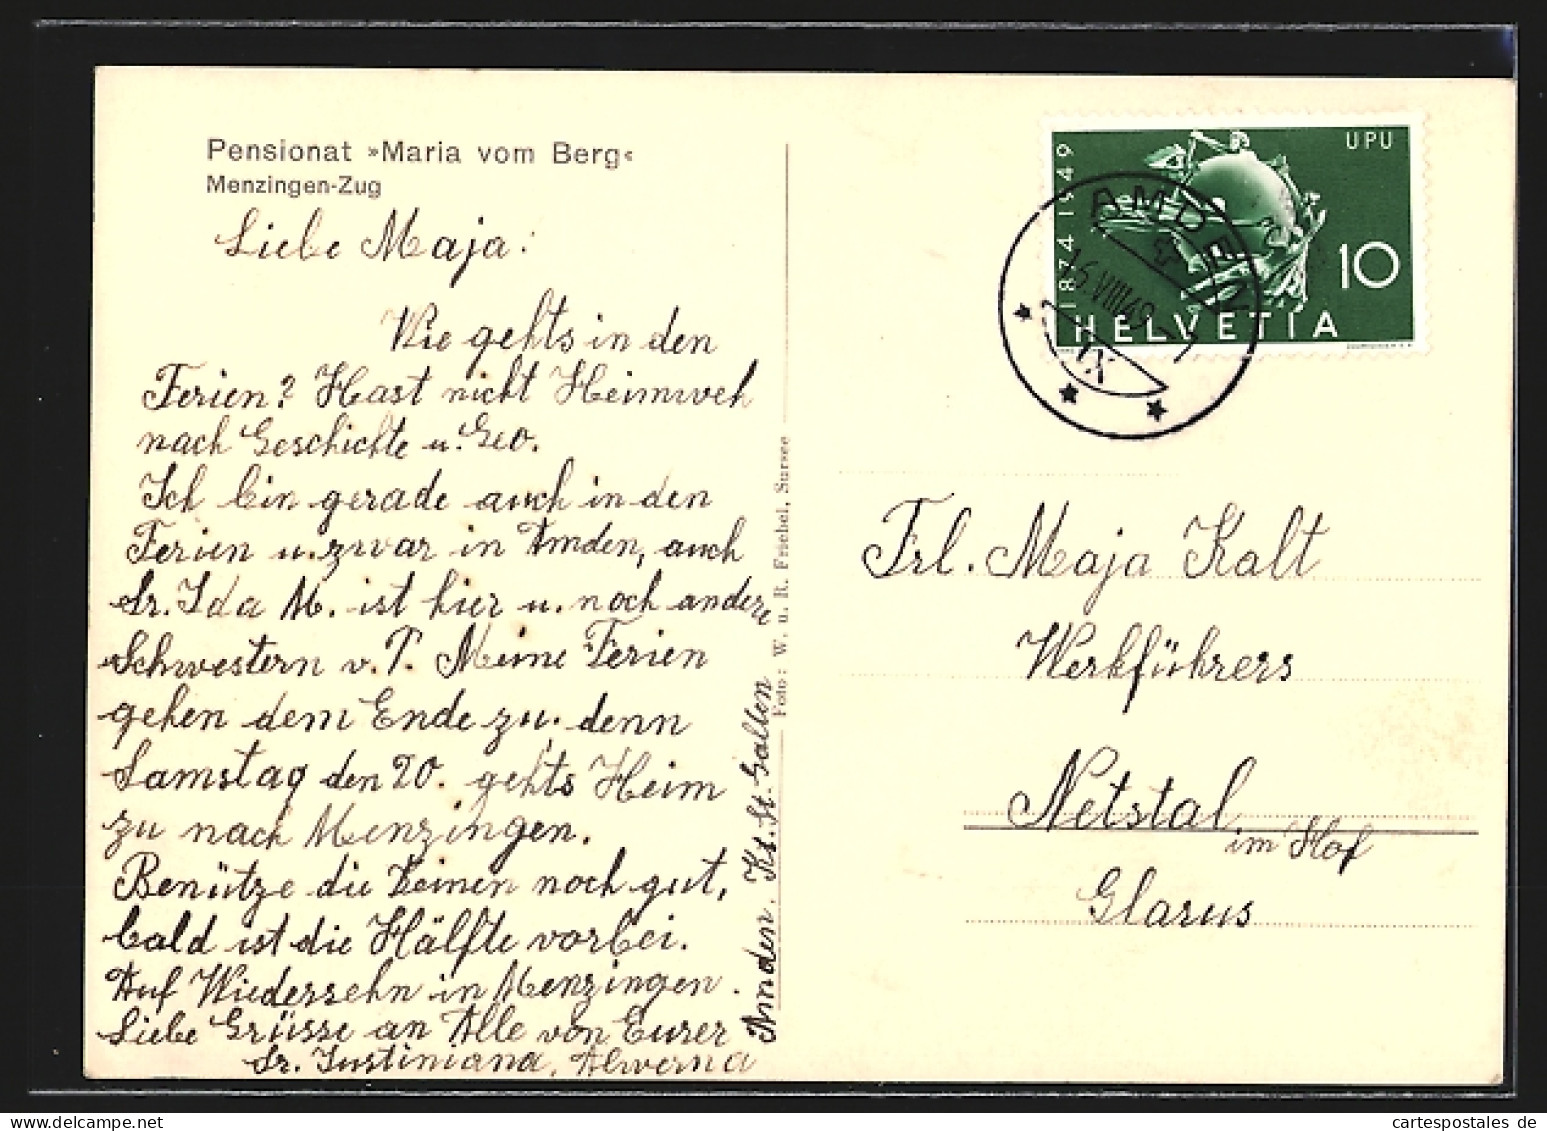 Pensionat »Maria vom Berg«
Menzingen-Zug
Liebe Maja:
Wie gehts in den
Ferien? Hast nicht Heimweh
nach Geschichte u. Geo.
Ich bin gerade auch in den
Ferien u. zwar in Amden, auch
Sr. Ida M. ist hier u. noch andere
Schwestern v. P. Meine Ferien
gehen dem Ende zu, denn
Samstag den 20. gehts Heim
zu nach Menzingen.
Benütze die Deinen noch gut,
bald ist die Hälfte vorbei.
Auf Wiedersehn in Menzingen.
Liebe Grüsse an Alle von Eurer
Sr. Justiniana, Alverna
Amden. Kt. St. Gallen
Foto: W. u. R. Friebel, Sursee
1874 1949
UPU
10
HELVETIA
AMDEN
15.VIII.49
IX
Frl. Maja Kalt
Werkführers
Netstal
im Hof
Glarus
cartespostales de